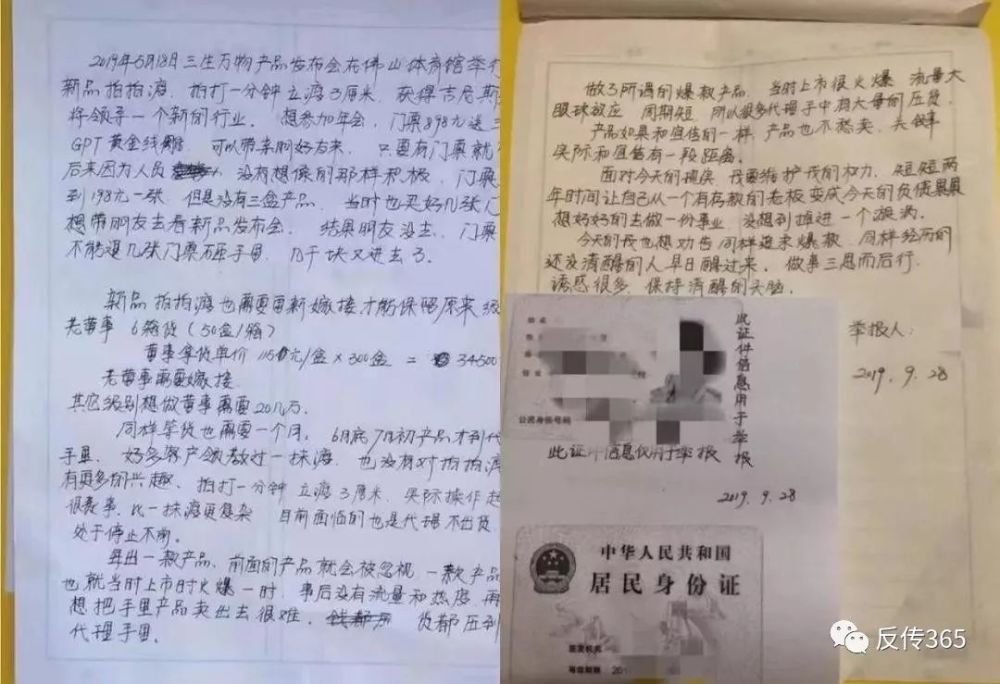 2019年5月18日三生万物产品发布会在佛山体育馆举行
新品拍拍瘦，拍打一分钟立瘦3厘米，获得吉尼斯
将领导一个新的行业，想参加年会，门票898元送三
GPT黄金线雕，可以带亲朋好友来，只要有门票就
后来因为人员，没有想像的那样积极，门票
到198元一张，但是没有三盒产品，当时也买好几张门
想带朋友去看新品发布会，结果朋友没去，门票
不能退几张门票砸手里，几千块又进去了。
新品拍拍瘦也需要更新嫁接才能保照原来级
老董事 6箱货（50盒/箱）
董事拿货单价 115元/盒×300盒 = 34500
老董事需要嫁接
其它级别想做董事需要20几万。
同样拿货也需要一个月，6月底7月初产品才到代
手里，好多客户领教过一抹瘦，也没有对拍拍瘦
有更多的兴趣，拍打一分钟立瘦3厘米，实际操作起
很费事，比一抹瘦更复杂，目前面临的也是代理不出货
处于停止不前。
每出一款产品，前面的产品就会被忽视，一款产品
也就当时上市时火爆一时，事后没有流量和热度，再
想把手里产品卖出去很难，货都压到
代理手里。
做了所谓的爆款产品，当时上市很火爆，流量大
眼球效应，周期短，所以很多代理手中有大量的压货。
产品如果和宣传的一样，产品也不愁卖，夫
实际和宣传有一段距离。
面对今天的现实，我要维护我的权力，短短两
年时间让自己从一个有存款的老板变成今天的负债累累
想好好的去做一份事业，没想到掉进一个漩涡。
今天的我也想劝告同样追求爆款，同样经历的
还没清醒的人早日醒过来，做事三思而后行，
诱惑很多，保持清醒的头脑。
举报人：
2019.9.28
姓名
住址
公民身份号码
此证件信息用于举报
此证件信息仅用于举报
2019.9.28
中华人民共和国
居民身份证
签发机关
有效期限 201
反传365